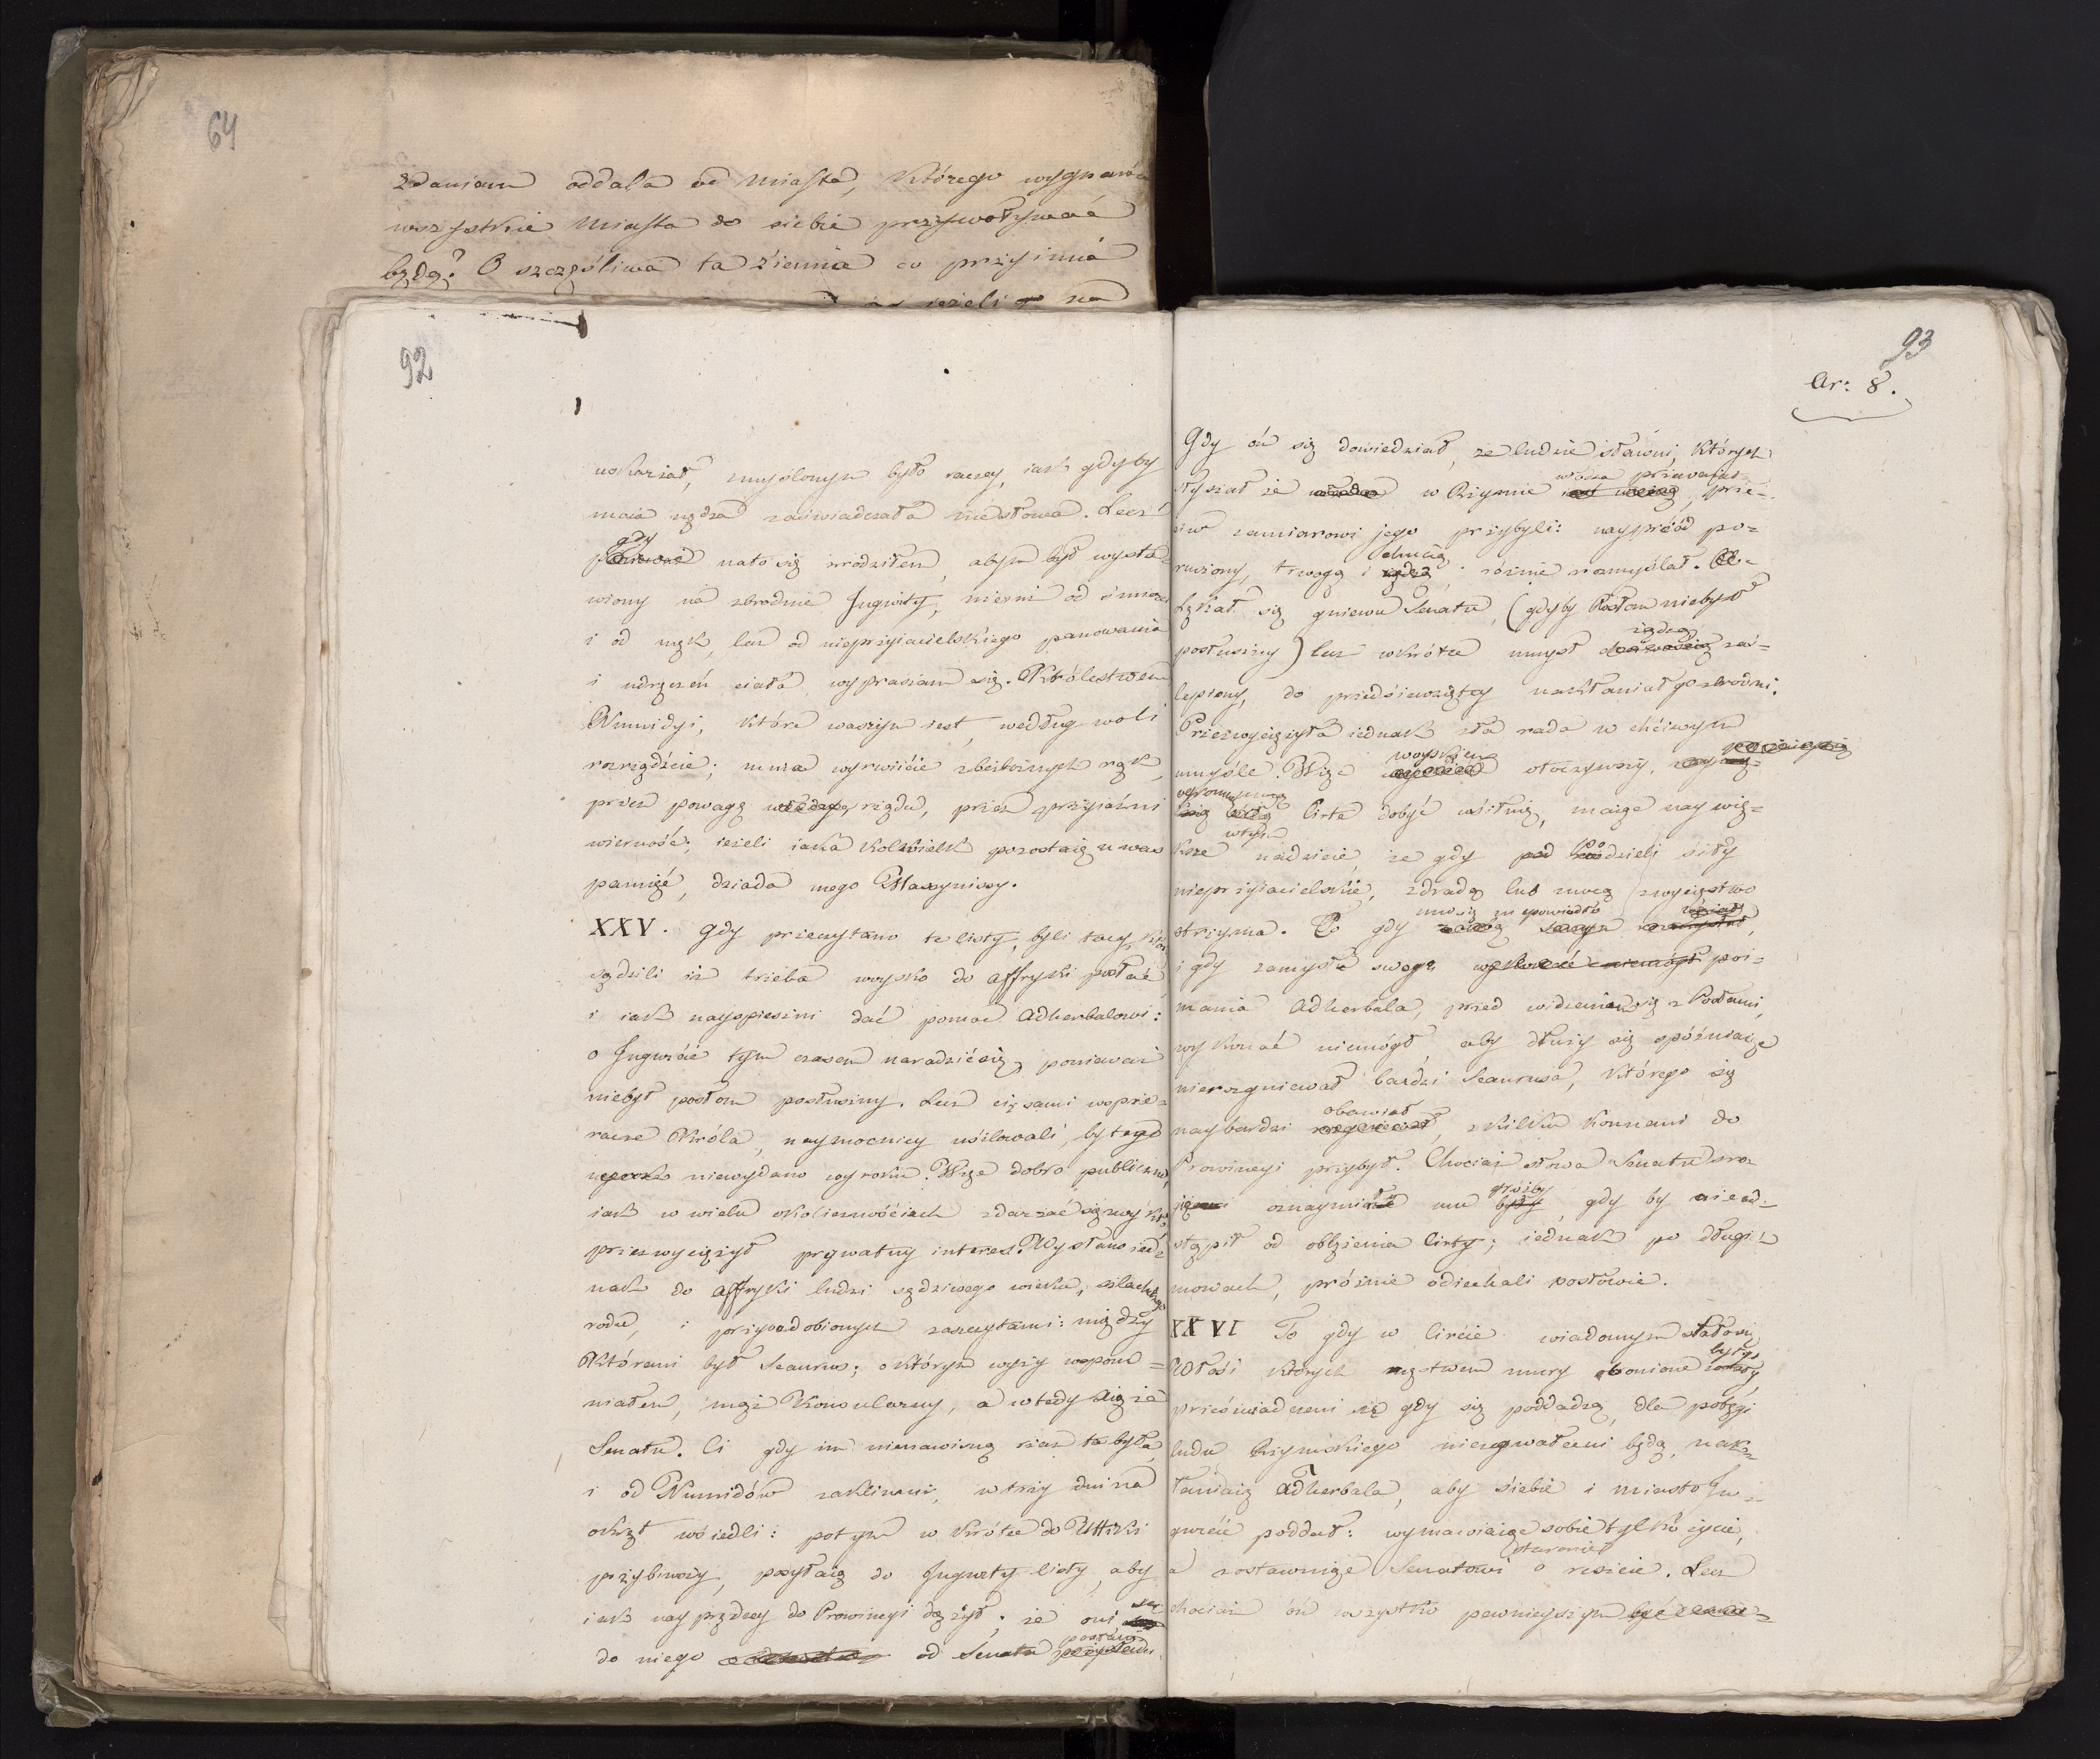 64
zdaniem oddala od Miasta, którego wygnańca
wszystkie Miasta do siebie przywoływać
będą? O szczęśliwa ta ziemia co przyimie
ieżeli go na
92
uskarżał, zmyślonym było raczey, iak gdyby
moia nędza zaświadczała me słowa. Lecz
gdy
ponieważ na to się zrodziłem, abym był wysta-
wiony na zbrodnie Jugurty, nie od śmierci
i od mąk, lecz od nieprzyiacielskiego panowania
i udręczeń ciała wypraszam się. Królestwem
Numidyi, które waszym iest, według woli
rozrządźcie; mnie wyrwiicie z bezbożnych rąk,
przez powagę rządu, przez przyiaźni
wierność; ieżeli iaka kolwiek pozostaie u was
pamięć, dziada mego Massynissy.
XXV. Gdy przeczytano te listy, byli tacy, któ
sądzili iż trzeba woysko do Affryki posłać
i iak nayspieszni dać pomoc Adherbalowi:
o Jugurcie tym czasem naradzić się, ponieważ
niebył posłom posłuszny. Lecz ciż sami wspie-
racze Króla, naymocniey usiłowali, by tego
niewydano wyroku. Więc dobro publiczne,
iak w wielu okolicznościach zdarzać się zwykło,
przezwyciężył prywatny interes. Wysłano ied-
nak do Affryki ludzi sędziwego wieku, szlachetnego
rodu, i przyozdobionych zaszczytami: między
Któremi był Scaurus; o którym wyży wspom-
niałem, mąż Konsularny, a wtedy Xiąże
Senatu. Ci gdy im nienawisną rzecz ta była,
i od Numidów zaklinani, w trzy dni na
okręt wsiedli: potym w krótce do Uttyki
przybywszy, posyłaią do Jugurty listy, aby
iak nayprędzey do Prowincyi dążył; że oni są
posłani
do niego od Senatu
93
Ar: 8.
Gdy ón się dowiedział, że ludzie sławni, których
władza przeważać
słyszał że w Rzymie, prze-
ciw zamiarowi jego przybyli: nayprzód po-
chucią
ruszony, trwogą i żądzą, różnie rozmyślał. Ol-
Lękał się gniewu Senatu, (gdyby Posłom niebył
żądzą
posłuszny) lecz wkrótce umysł zaś-
lepiony, do przedsięwziętey nakłaniał go zbrodni.
Przezwyciężyła iednak zła rada w chciwym
woyskiem
umyśle. Więc otoczywszy,
ogromną mocą
Cirte dobyć usiłuie, maiąc naywię-
wtym
ksze nadzieie, że gdy po dzieli siły
nieprzyiacielskie, zdradą lub mocą zwycięstwo
mu się nie powiodło
otrzyma. To gdy
i gdy zamysłu swego poi-
mania Adherbala, przed widzeniem się z Posłami,
wykonać niemógł, aby dłuży się spóźniaiąc
nierozgniewał bardzi Scaurusa, którego się
obawiał
naybardzi, z kilku konnemi do
Prowincyi przybył. Chociaż słowa Senatu sro-
groźby
oznaymiło mu, gdy by nieod-
stąpił od oblężenia Cirty; iednak po długi
mowach, próżnie odiechali posłowie.
XXVI To gdy w Circie wiadomym stało się,
były
Włosi których męstwem mury bronione
przeświadczeni iż gdy się poddadzą, dla potęgi
ludu Rzymskiego niezgwałceni będą, nak-
łaniaią Adherbala, aby siebie i miasto Ju-
gurcie poddał: wymawiaiąc sobie tylko życie,
staranie
a zostawuiąc Senatowi o reszcie. Lecz
chociaż ón wszystko pewnieyszym być